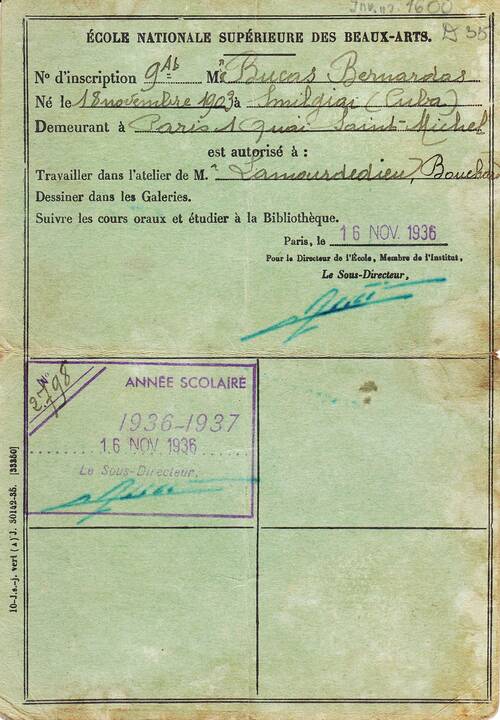 Inv. nr. 1600
D 35
ÉCOLE NATIONALE SUPÉRIEURE DES BEAUX-ARTS.
N° d'inscription 9Ab Mr Bucas Bernardas
Né le 18 novembre 1903 à Smilgiai (Cuba)
Demeurant à Paris 1 Quai Saint-Michel
est autorisé à :
Travailler dans l'atelier de M. Lamourdedieu, Bouchard
Dessiner dans les Galeries.
Suivre les cours oraux et étudier à la Bibliothèque.
Paris, le 16 NOV. 1936
Pour le Directeur de l'École, Membre de l'Institut,
Le Sous-Directeur,
N° 2798
ANNÉE SCOLAIRE
1936-1937
16 NOV. 1936
Le Sous-Directeur,
10-J.s.-j. vert (A) J. 30142-35. [33350]